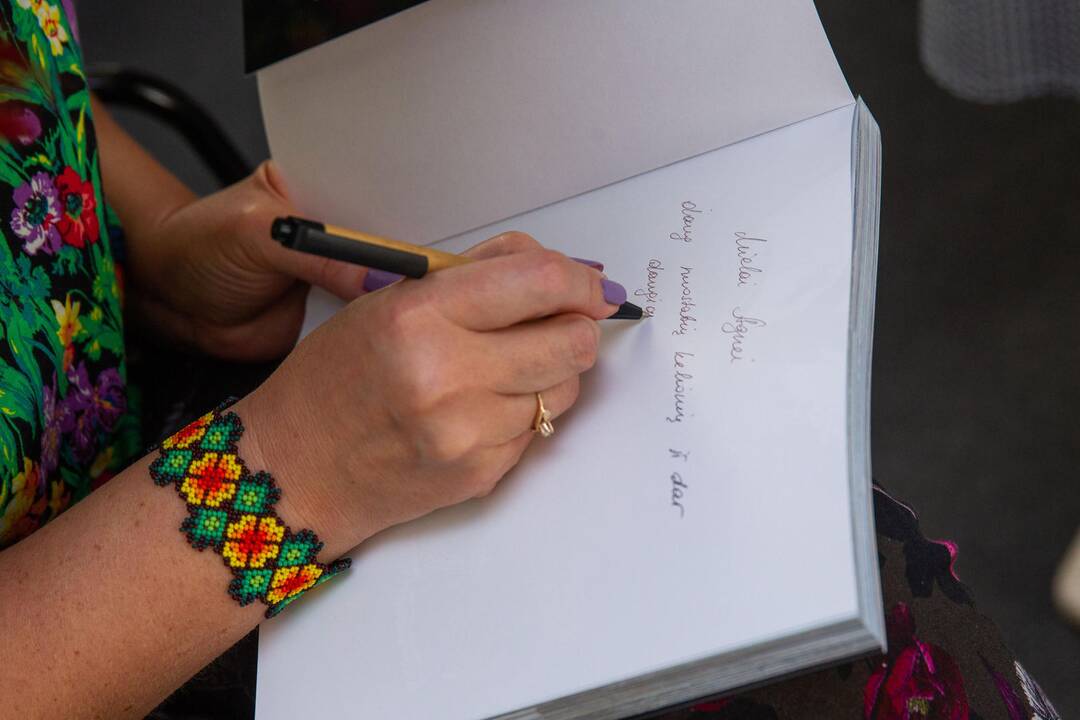 Mielai Agnei
daug nuostabių kelionių ir dar
daugia